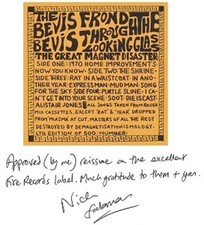 THE
BEVIS FROND
BEVIS THROUGH THE
LOOKING GLASS
THE GREAT MAGNET DISASTER
SIDE ONE: 1970 HOME IMPROVEMENTS
NOW YOU KNOW · SIDE TWO: THE SHRINE ·
SIDE THREE: RAT IN A WAISTCOAT · IN ANO-
THER YEAR · EXPRESS MAN · MUDMAN · SONG
FOR THE SKY · SIDE FOUR: PURTLE SLINE · I CA-
N'T GET INTO YOUR SCENE · SOOT · DIE IS CAST
ALISTAIR JONES ALL SONGS TAKEN FROM ROUGH
MIX CASSETTES, EXCEPT RAT & YEAR DROPPED
FROM MIASMA AT CUT. MASTERS OF ALL THE REST
DESTROYED BY DEMAGNETISATION
LTD EDITION OF 500 NUMBER:
Approved (by me) reissue on the excellent
Fire Records label. Much gratitude to them + you.
Nick
Saloman